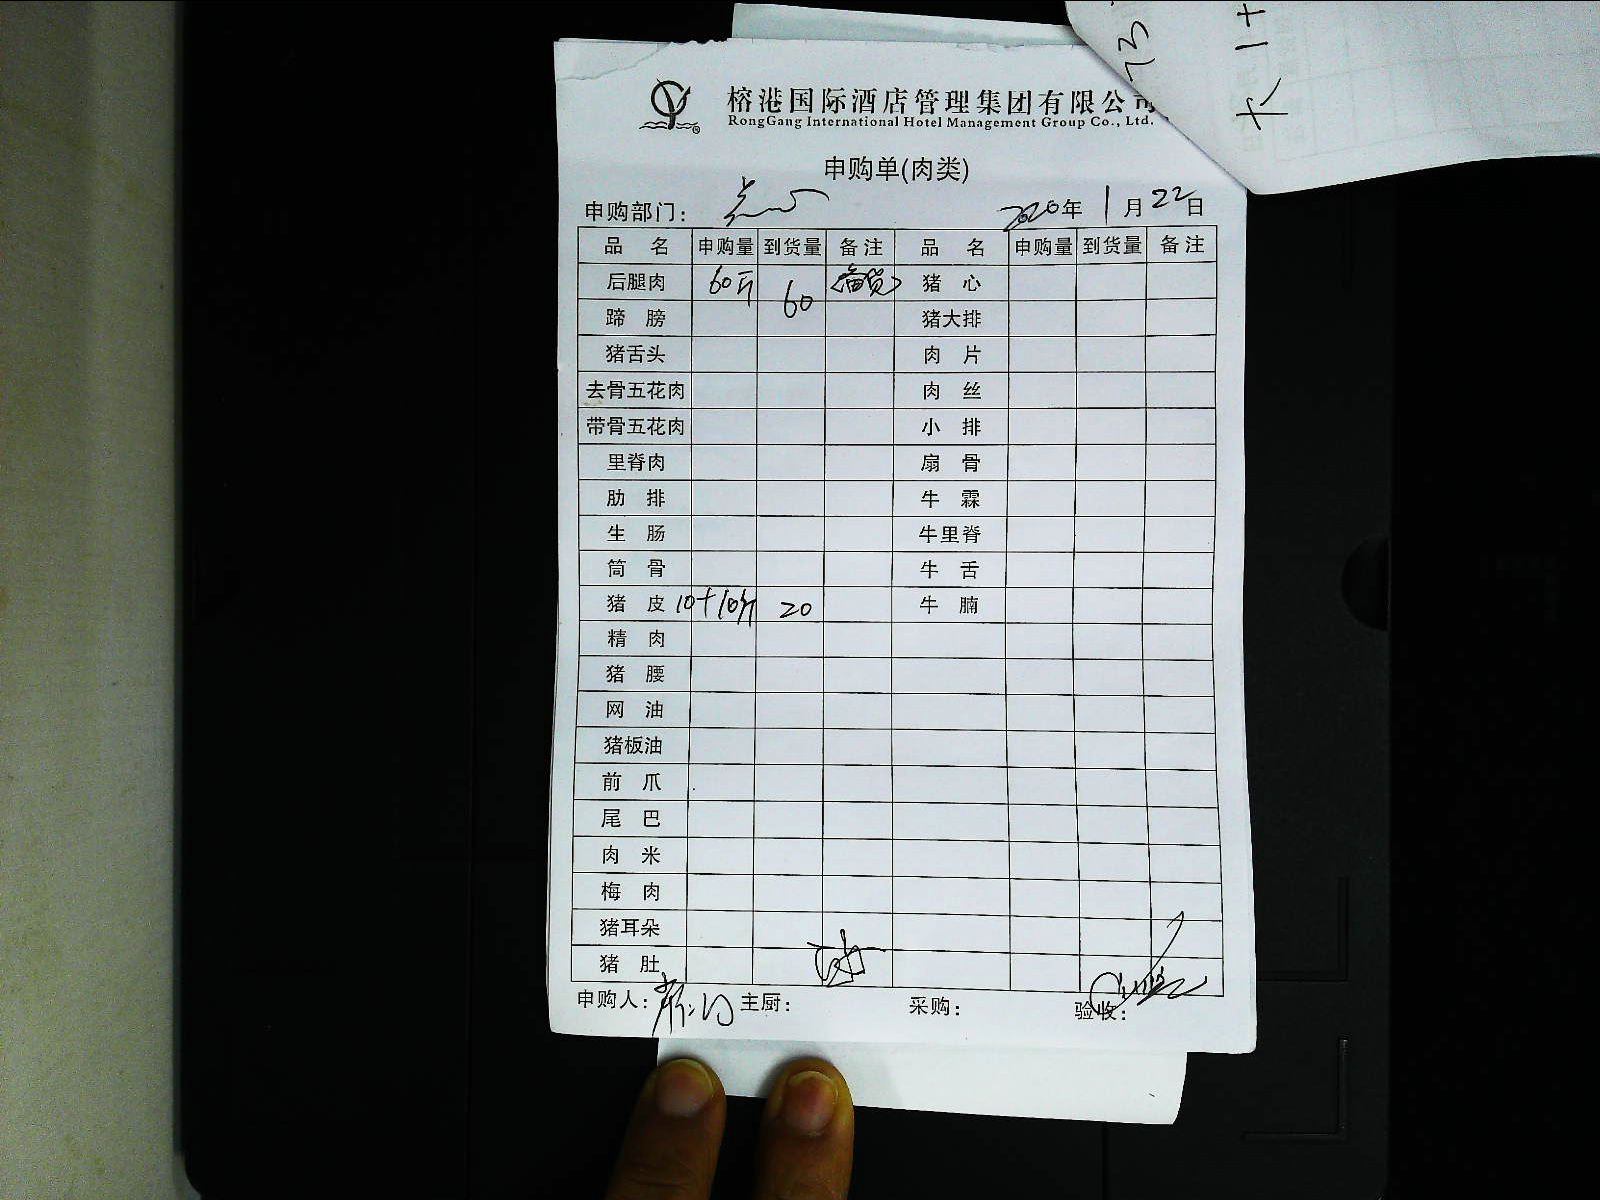 榕港国际酒店管理集团有限公司
RongGang International Hotel Management Group Co., Ltd.
申购单(肉类)
申购部门： 点心 2020年 1月22日
品名 申购量 到货量 备注 品名 申购量 到货量 备注
后腿肉 60斤 60 (备货) 猪心
蹄膀 猪大排
猪舌头 肉片
去骨五花肉 肉丝
带骨五花肉 小排
里脊肉 扇骨
肋排 牛霖
生肠 牛里脊
筒骨 牛舌
猪皮 10+10斤 20 牛腩
精肉
猪腰
网油
猪板油
前爪
尾巴
肉米
梅肉
猪耳朵
猪肚
申购人： 主厨： 采购： 验收：